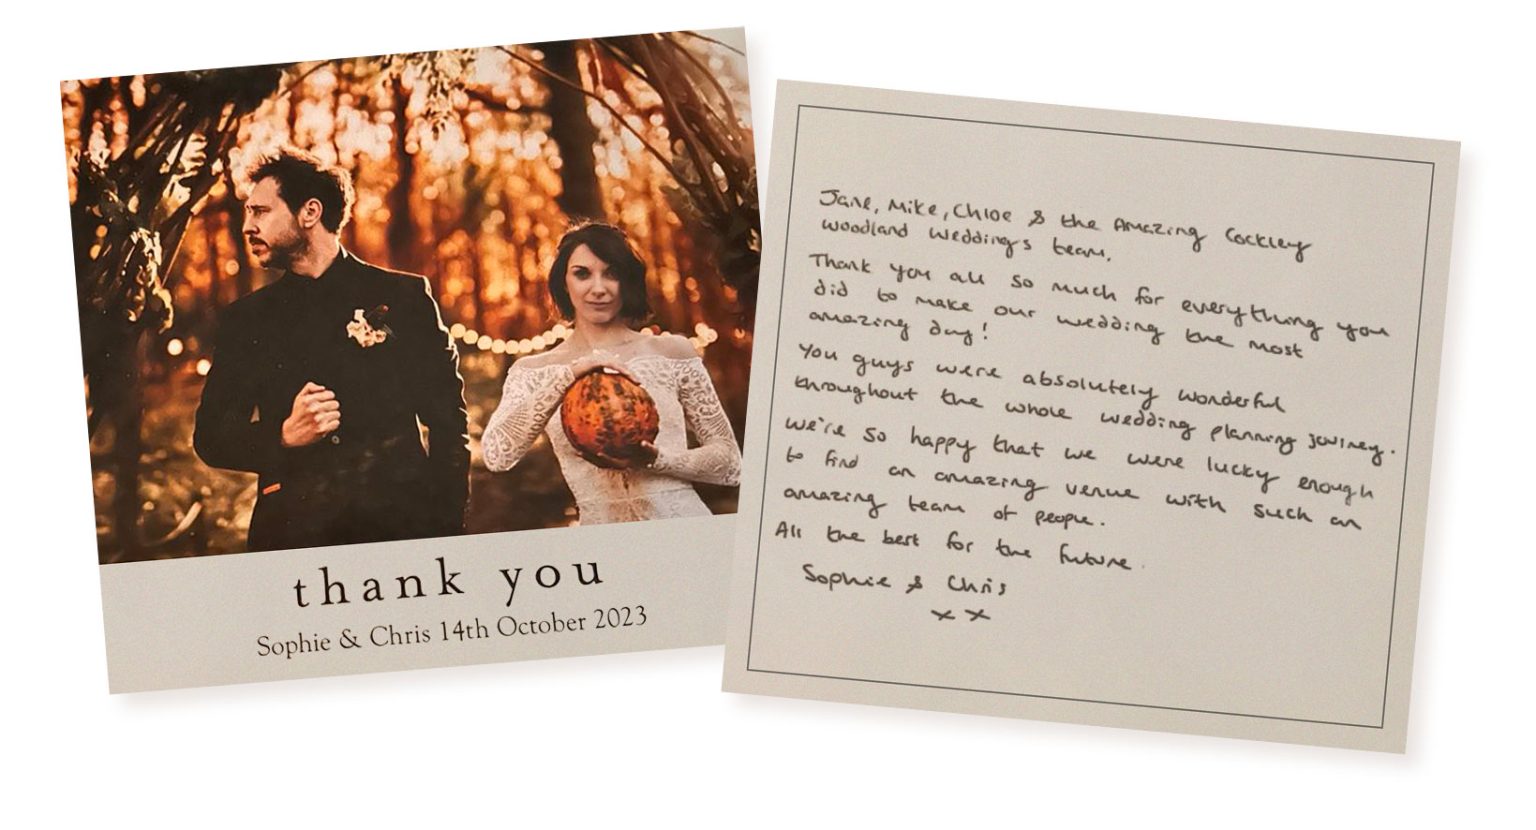 thank you
Sophie & Chris 14th October 2023
Jane, Mike, Chloe & the Amazing Cockley
Woodland Weddings team.
Thank you all so much for everything you
did to make our wedding the most
amazing day!
You guys were absolutely wonderful
throughout the whole wedding planning journey.
We're so happy that we were lucky enough
to find an amazing venue with such an
amazing team of people.
All the best for the future.
Sophie & Chris
x x